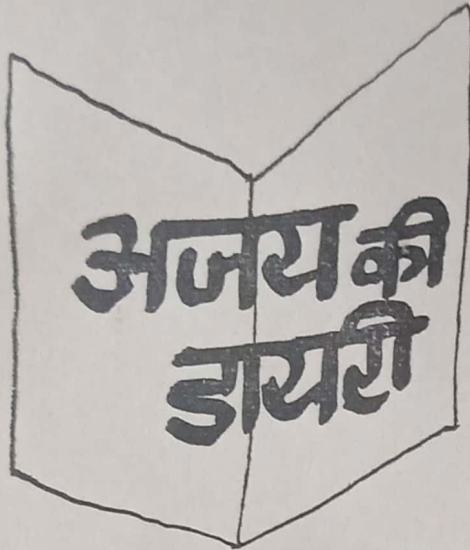 अजय की
डायरी